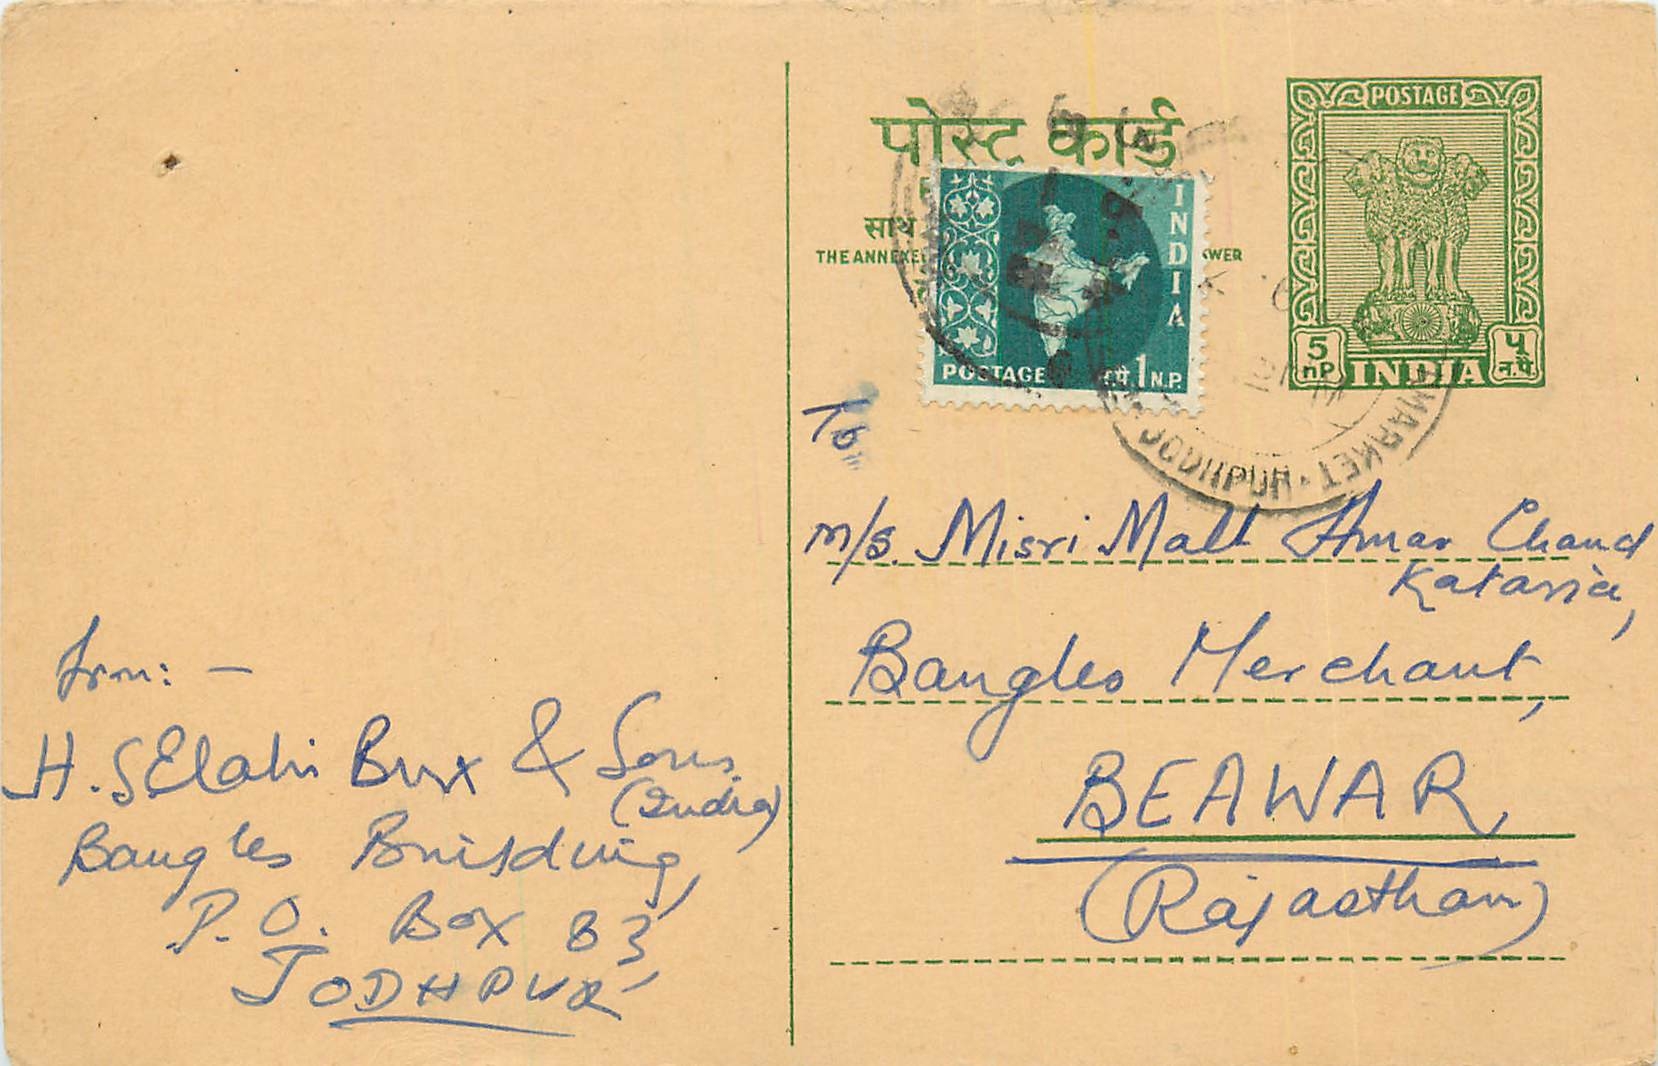 पोस्ट कार्ड
साथ
THE ANNEXE
WER
POSTAGE
5
nP
INDIA
५
न.पै.
INDIA
POSTAGE
न.पै. 1 N.P.
JODHPUR · MARKET
To
m/s. Misri Mall Amar Chand
Kataria,
Bangles Merchant,
BEAWAR
(Rajasthan)
From: -
H. S Elahi Bux & Sons
(India)
Bangles Building,
P. O. Box 83,
JODHPUR